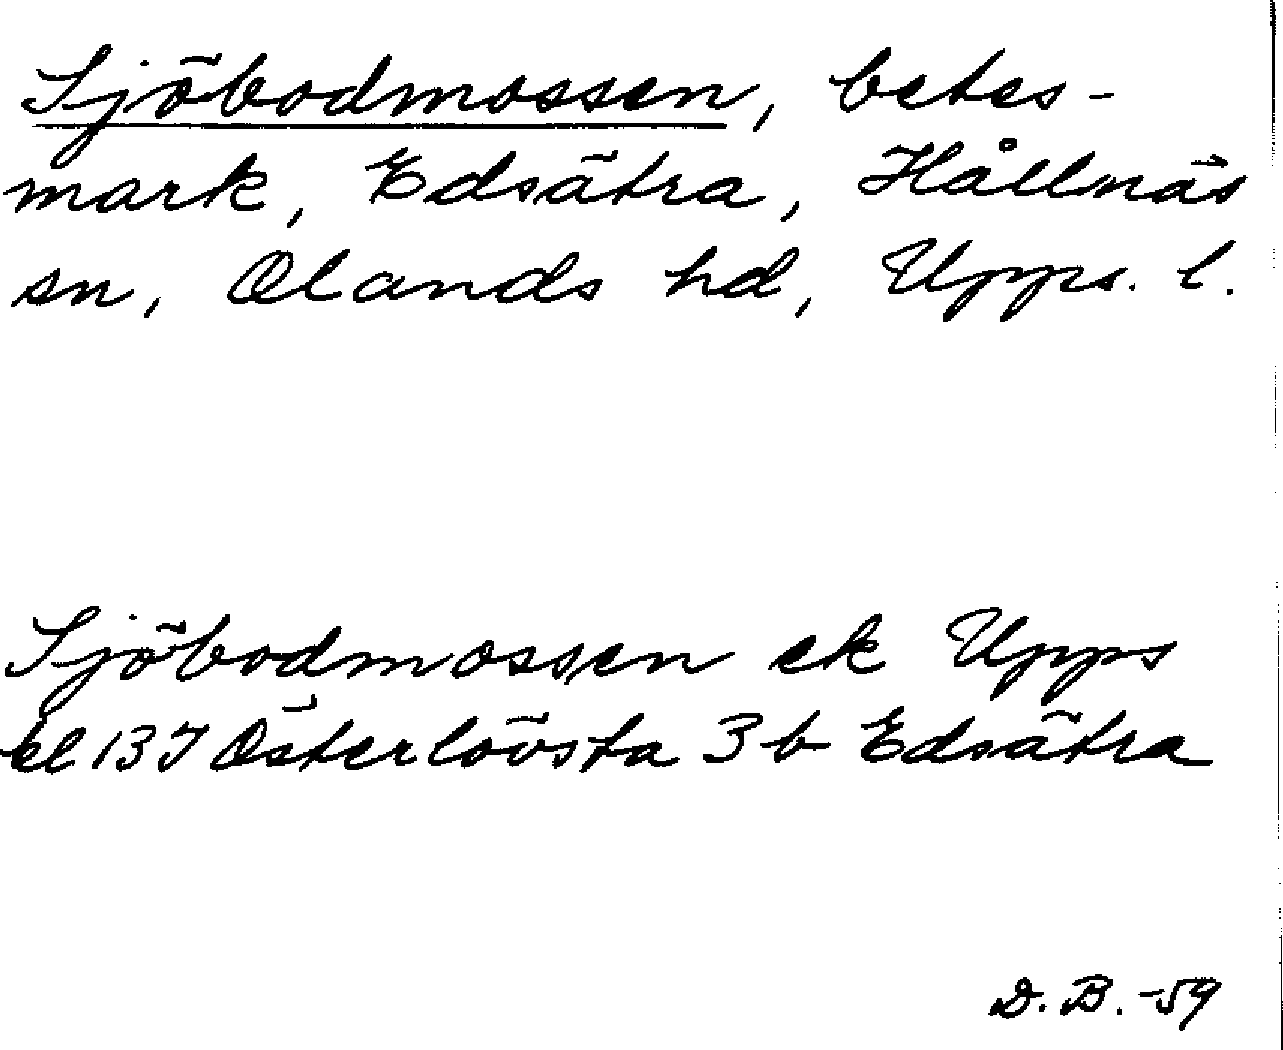 Sjöbodmossen, betes-
mark, Edsätra, Hållnäs
sn, Olands hd, Upps. l.
Sjöbodmossen ek Upps
bl 13 I Österlövsta 3 b Edsätra
D. B. -59